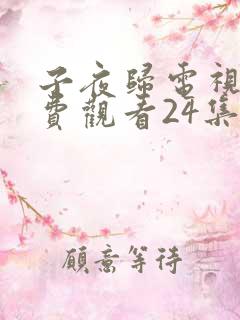 子夜歸電視
費觀看24集
願意等待